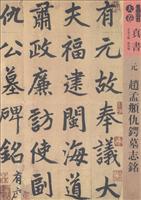 真書
元 趙孟頫仇鍔墓志銘
天卷
有元故奉議
大夫福建閩海道
肅政廉訪副
仇公墓碑銘 有序